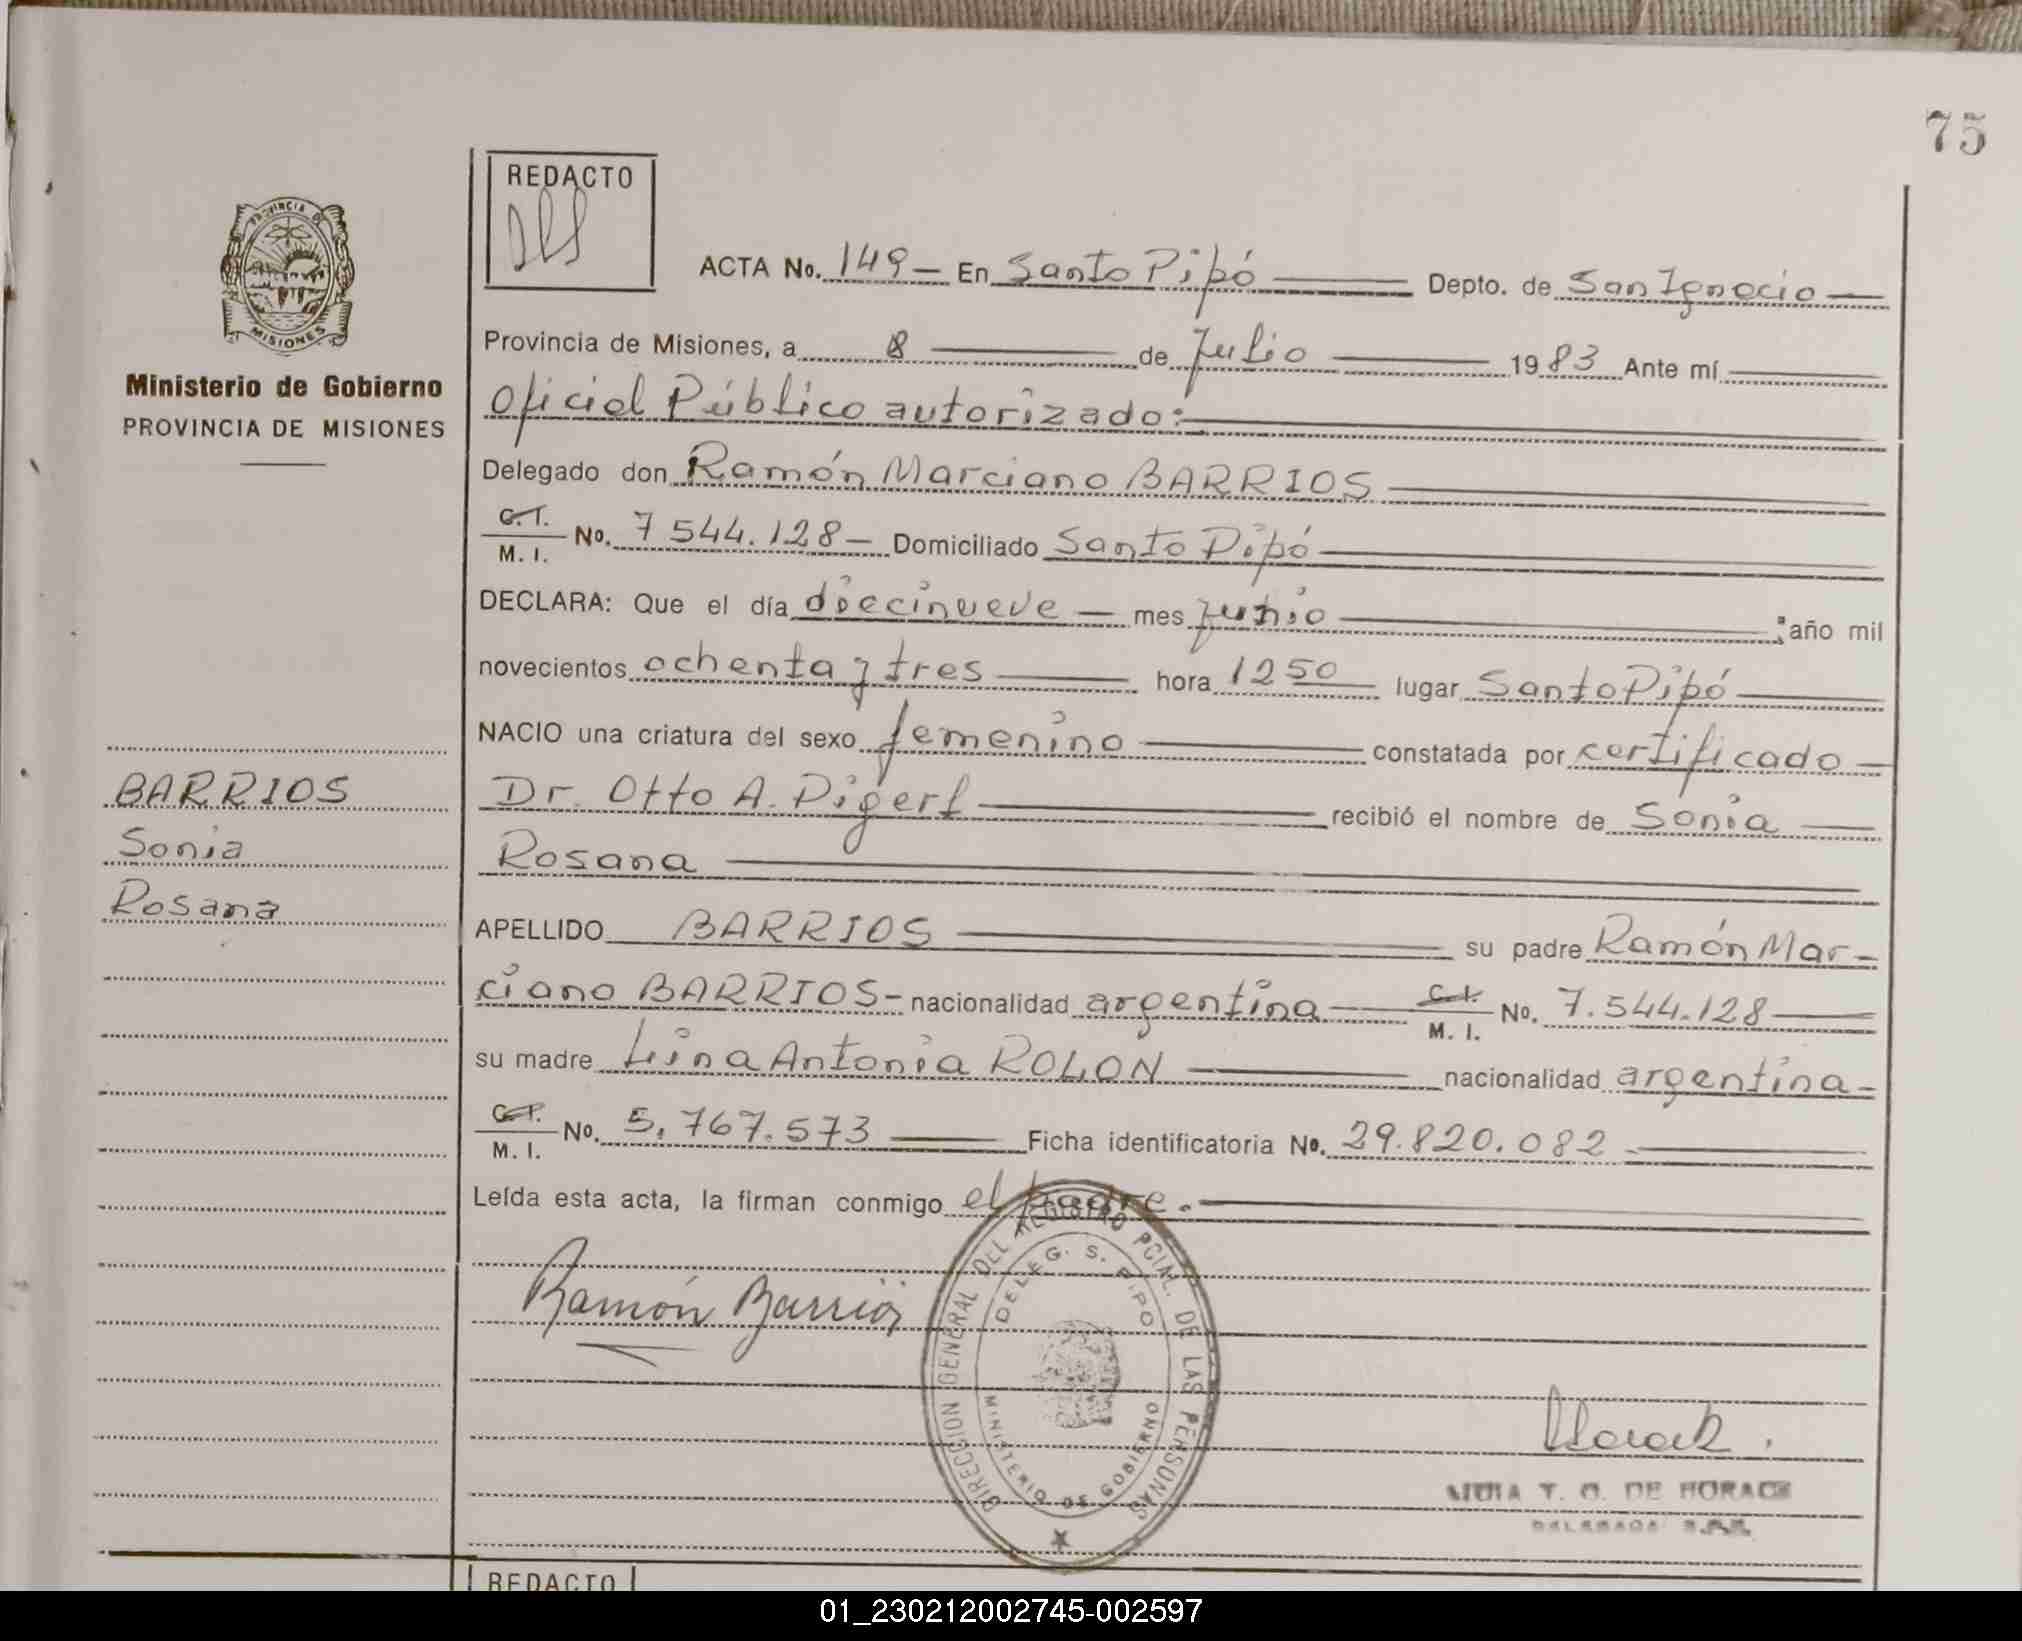 75
REDACTO
PROVINCIA DE
MISIONES
Ministerio de Gobierno
PROVINCIA DE MISIONES
ACTA No. 149 — En Santo Pipó Depto. de San Ignacio
Provincia de Misiones, a 8 de Julio 1983 Ante mí
Oficial Público autorizado:
Delegado don Ramón Marciano BARRIOS
C.I. M. I. No. 7 544.128 — Domiciliado Santo Pipó
DECLARA: Que el día diecinueve — mes Junio ; año mil
novecientos ochenta y tres hora 1250 lugar Santo Pipó
NACIO una criatura del sexo femenino constatada por certificado
Dr. Otto A. Pigerl recibió el nombre de Sonia
Rosana
APELLIDO BARRIOS su padre Ramón Mar-
ciano BARRIOS - nacionalidad argentina C.I. M. I. No. 7.544.128
su madre Lina Antonia ROLON nacionalidad argentina
C.I. M. I. No. 5.767.573 Ficha identificatoria No. 29.820.082
Leída esta acta, la firman conmigo el padre.
BARRIOS
Sonia
Rosana
Ramón Barrios
DIRECCION GENERAL DEL REGISTRO PCIAL. DE LAS PERSONAS
DELEG. S. PIPO
MINISTERIO DE GOBIERNO
T. O. DE HORACK
REDACTO
01_230212002745-002597